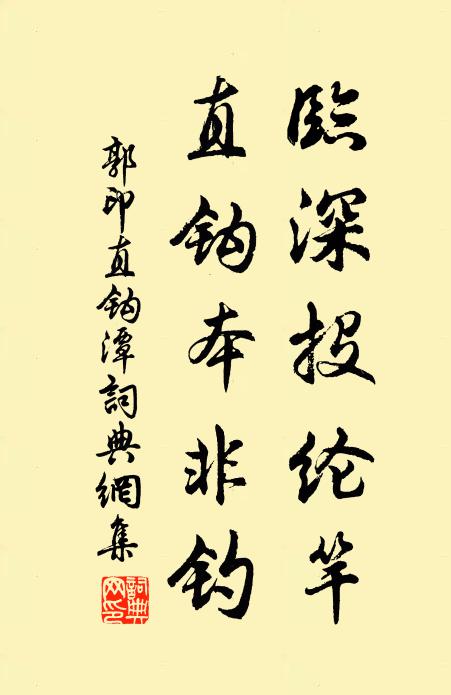 臨深投纶竿
直钩本非钓
郭印直钩潭詞典網集
詞典网印